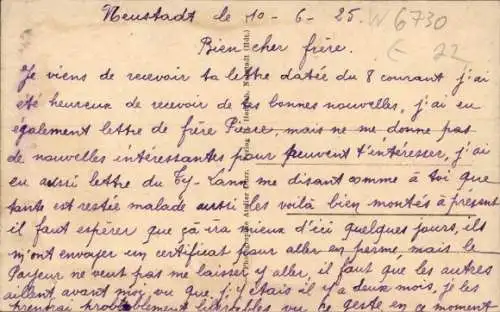 Neustadt le 10-6-25.
W 6730
E 22
Bien cher frère.
Je viens de recevoir ta lettre datée du 8 courant j'ai
été heureux de recevoir de tes bonnes nouvelles, j'ai eu
également lettre de frère Pierre, mais ne me donne pas
de nouvelles intéressantes pour peuvent t'intéresser, j'ai
eu aussi lettre du me disant comme à toi que
tante est restée malade aussi les voilà bien montés à présent
il faut espérer que ça ira mieux d'ici quelques jours, ils
m'ont envoyer un certificat pour aller en perme, mais le
Payeur ne veut pas me laisser y aller, il faut que les autres
aillent avant moi vu que j'y étais il y a deux mois, je les
prendrai probablement vu ce geste en ce moment
Neustadt (Hdt.)